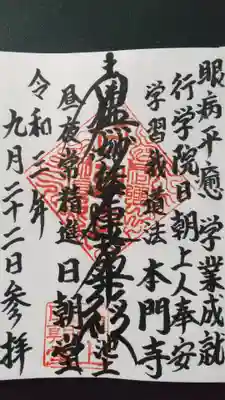 眼病平癒 学業成就
行学院日朝上人奉安
学習我道法 本門寺
南無妙法蓮華経
昼夜常精進 日朝堂
令和三年
九月二十二日参拝